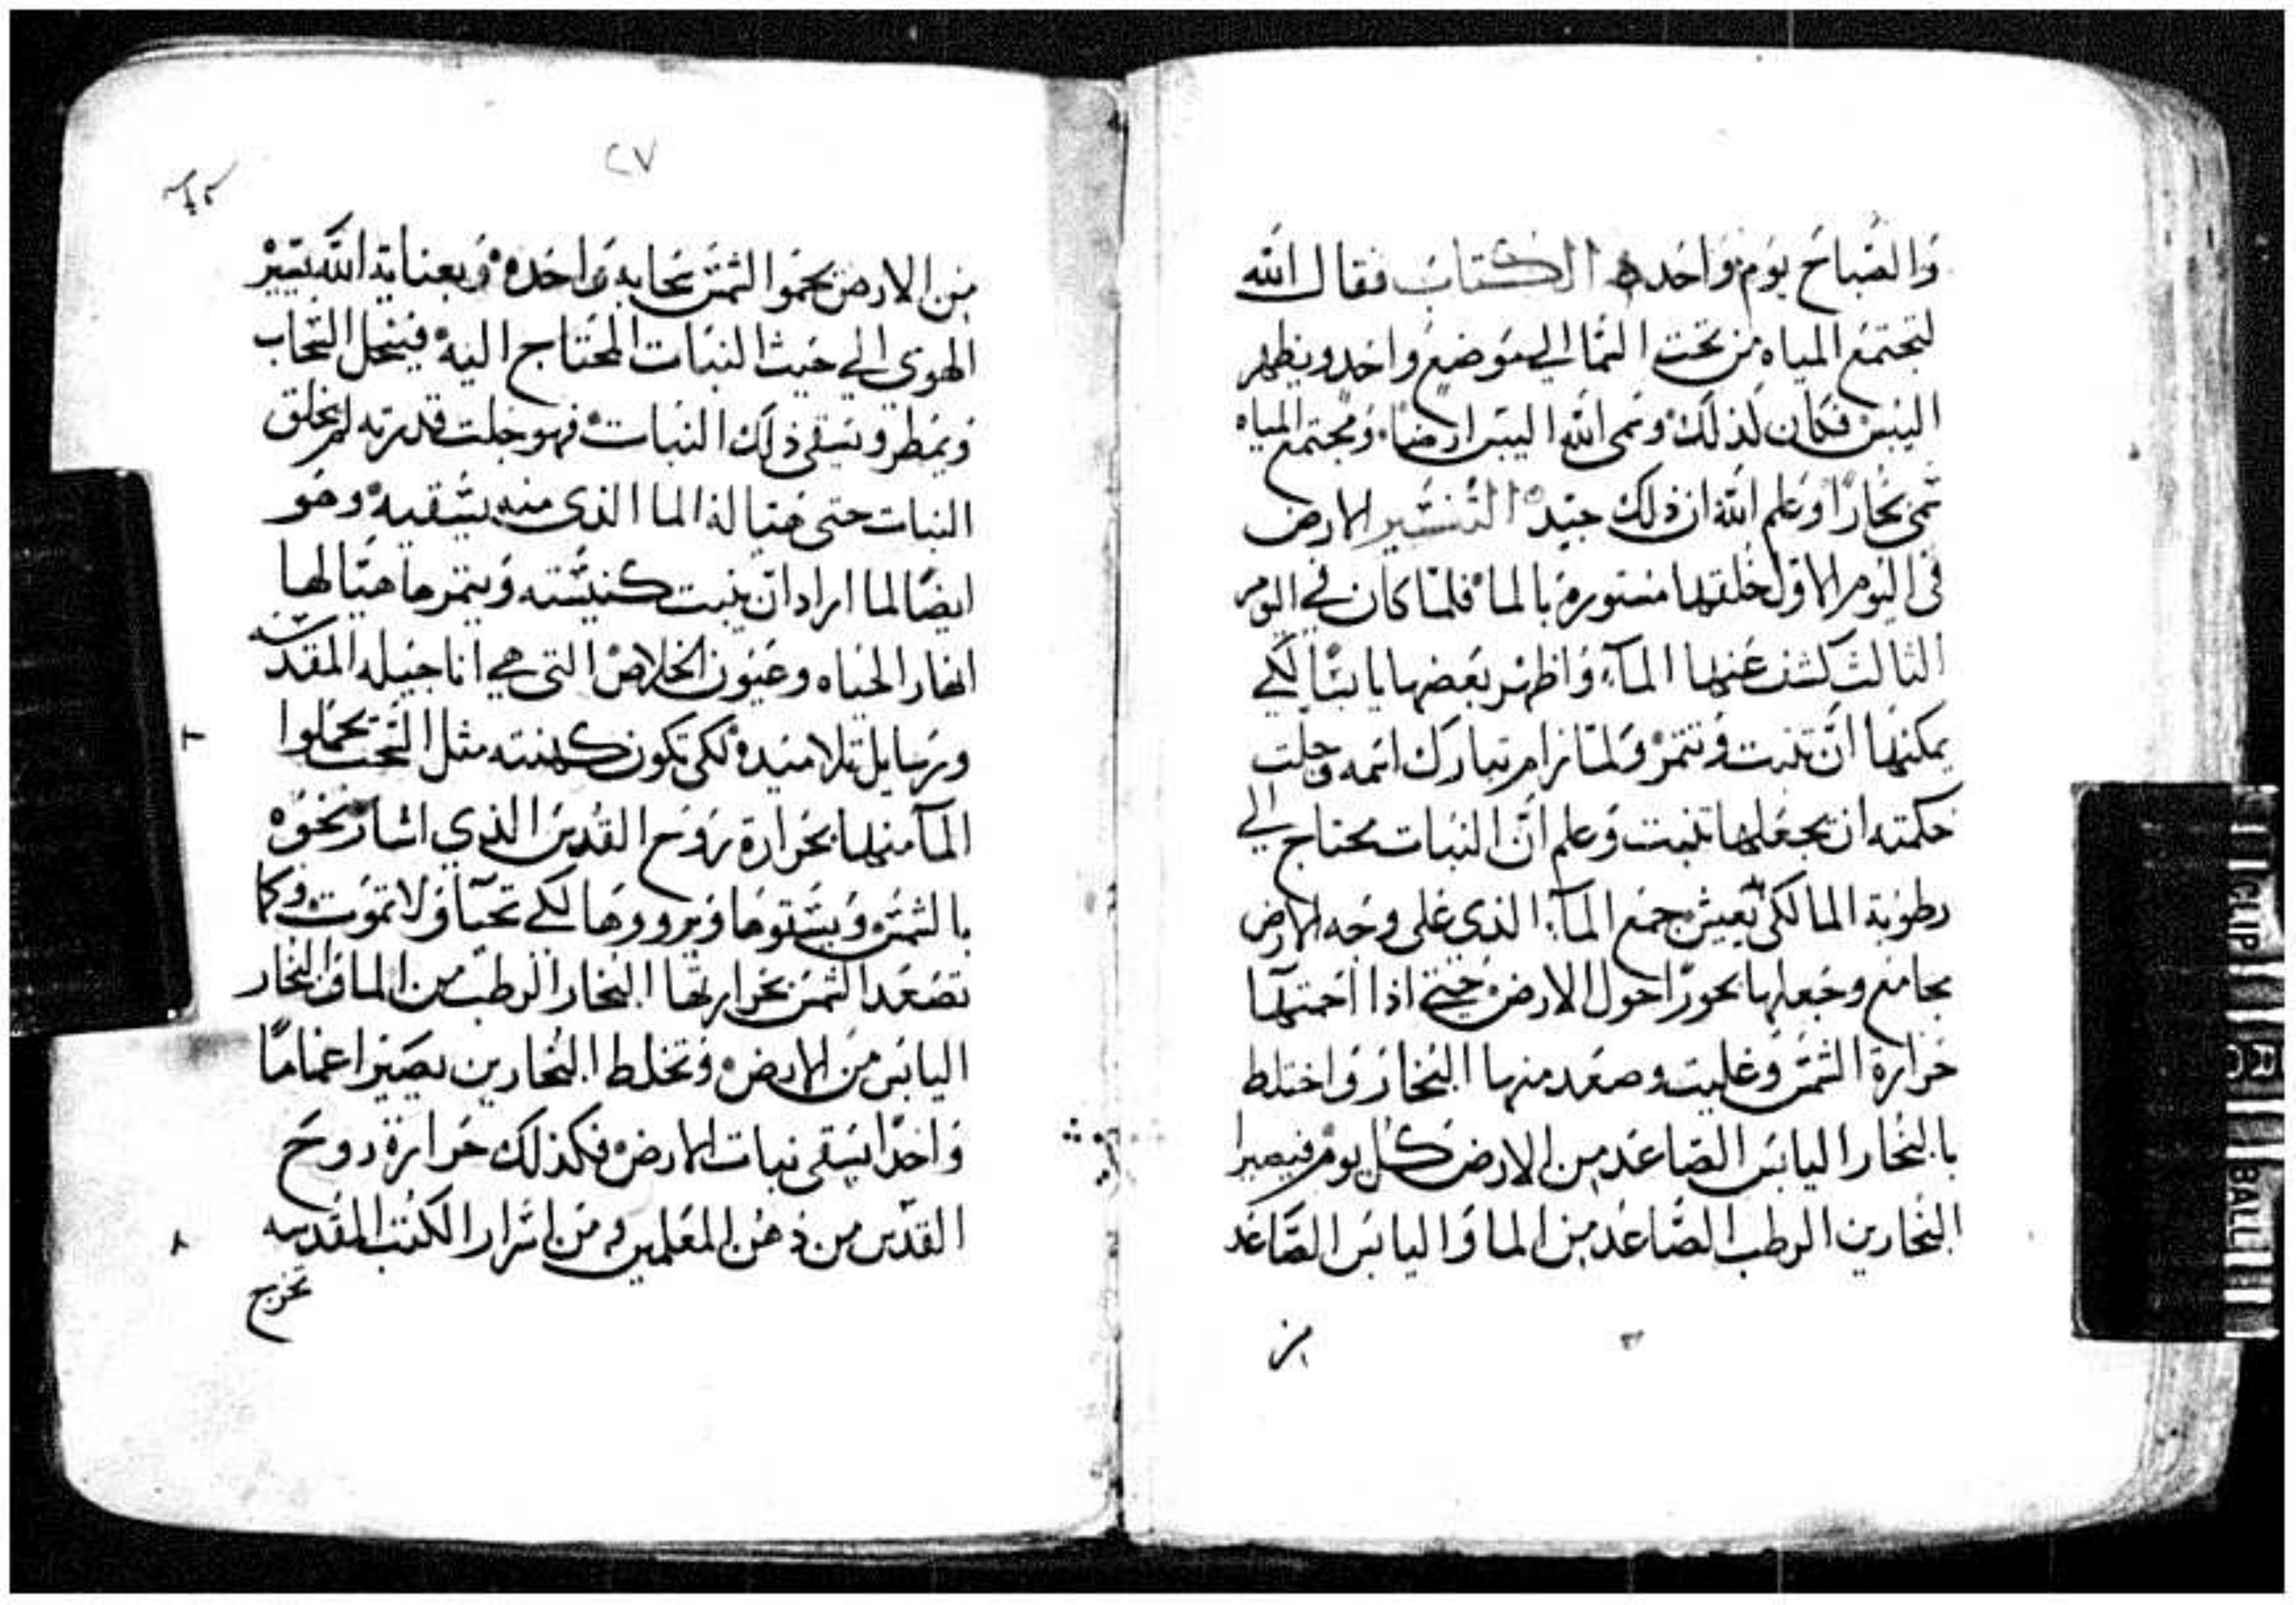 والصباح يوم واحده الكتاب فقال الله
لتجتمع المياه من تحت السما الى موضع واحد ويظهر
اليبس فكان كذلك وسمى الله اليبس ارضا ومجتمع المياه
سمى بحارا وعلم الله ان ذلك جيد التفسير الارض
فى اليوم الاول خلقها مستوره بالما فلما كان في اليوم
الثالث كشف عنها المآء واظهر بعضها يابسا لكي
يمكنها ان تنبت وتثمر ولما رام تبارك اسمه وجلت
حكمته ان يجعلها تنبت وعلم ان النبات محتاج الي
رطوبة الما لكي يعيش جمع المآء الذي على وجه الارض
مجامع وجعلها بحورا حول الارض حتي اذا احمتها
حرارة الشمس وغليت وصعد منها البخار واختلط
بالبخار اليابس الصاعد من الارض كل يوم فيصيرا
البخارين الرطب الصاعد من الما واليابس الصاعد
من
٢٧
من الارض بحمو الشمس سحابه واحده وبعناية الله تسير
الهوى الي حيث النبات المحتاج اليه فينحل السحاب
ويمطر ويسقى ذلك النبات فهو جلت قدرته لم يخلق
النبات حتى هيا له الما الذى منه يسقيه وهو
ايضا لما اراد ان ينبت كنيسته ويثمرها هيا لها
انهار الحياه وعيون الخلاص التى هي اناجيله المقدسه
ورسايل تلاميذه لكى تكون كهنته مثل السحب يحملوا
المآ منها بحرارة روح القدس الذي اشار نحوه
بالشمس ويسقوها ويرووها لكي تحيآ ولا تموت وكما
تصعد الشمس بحرارتها البخار الرطب من الما والبخار
اليابس من الارض وتخلط البخارين يصيرا غماما
واحدا يسقى نبات الارض فكذلك حرارة روح
القدس من ذهن المعلمين ومن اسرار الكتب المقدسه
تخرج